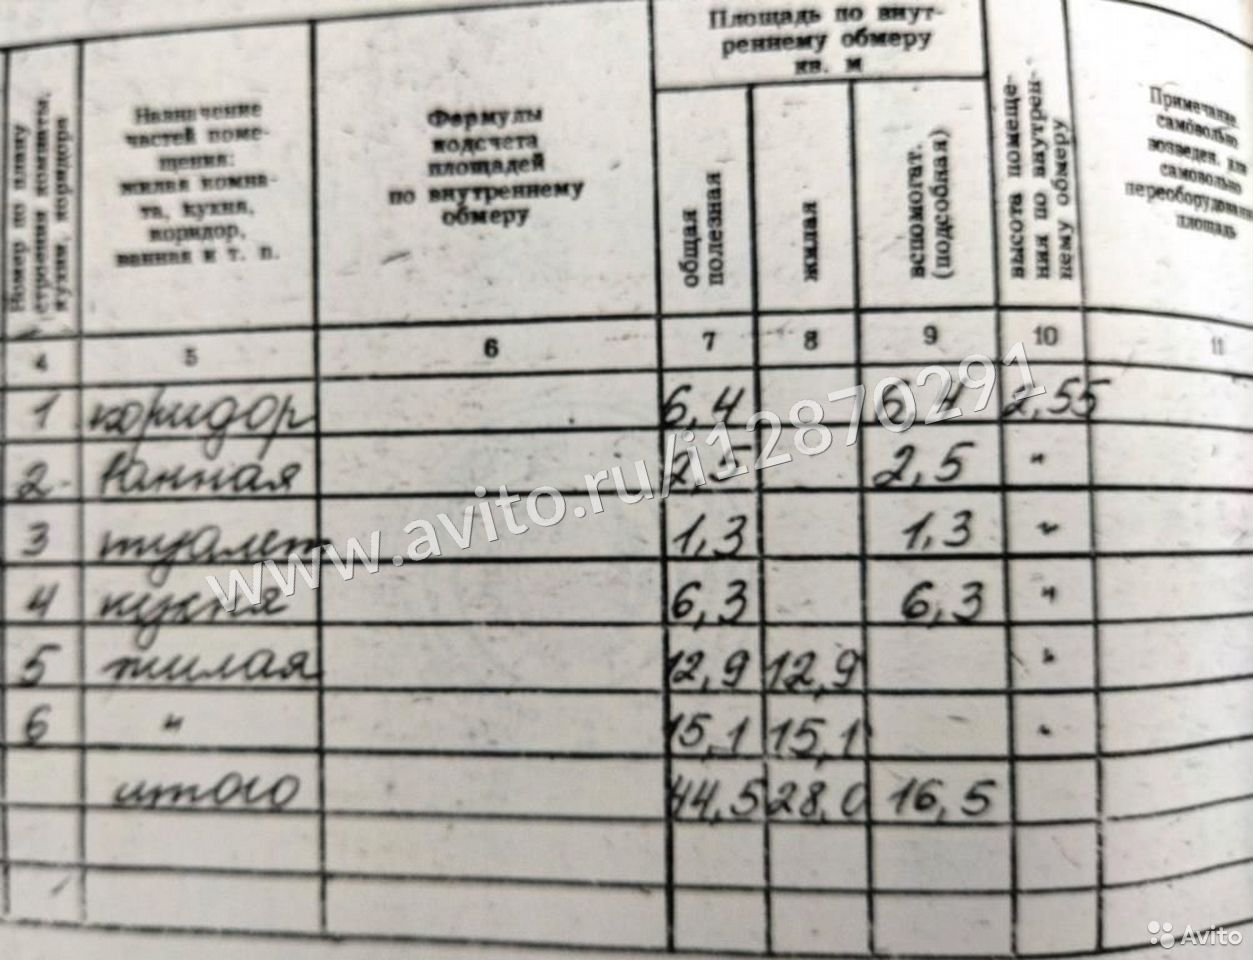 Номер по плану
строения комнаты,
кухни, коридора
Назначение
частей поме-
щения:
жилая комна-
та, кухня,
коридор,
ванная и т. п.
Формулы
подсчета
площадей
по внутреннему
обмеру
Площадь по внут-
реннему обмеру
кв. м
общая
полезная
жилая
вспомогат.
(подсобная)
высота помеще-
ния по внутрен-
нему обмеру
Примечание,
самовольно
возведен. или
самовольно
переоборудованная
площадь
4 5 6 7 8 9 10 11
1 коридор 6,4 6,4 2,55
2 Ванная 2,5 2,5 "
3 туалет 1,3 1,3 "
4 кухня 6,3 6,3 "
5 жилая 12,9 12,9 "
6 " 15,1 15,1 "
итого 44,5 28,0 16,5
www.avito.ru/i12870291
Avito